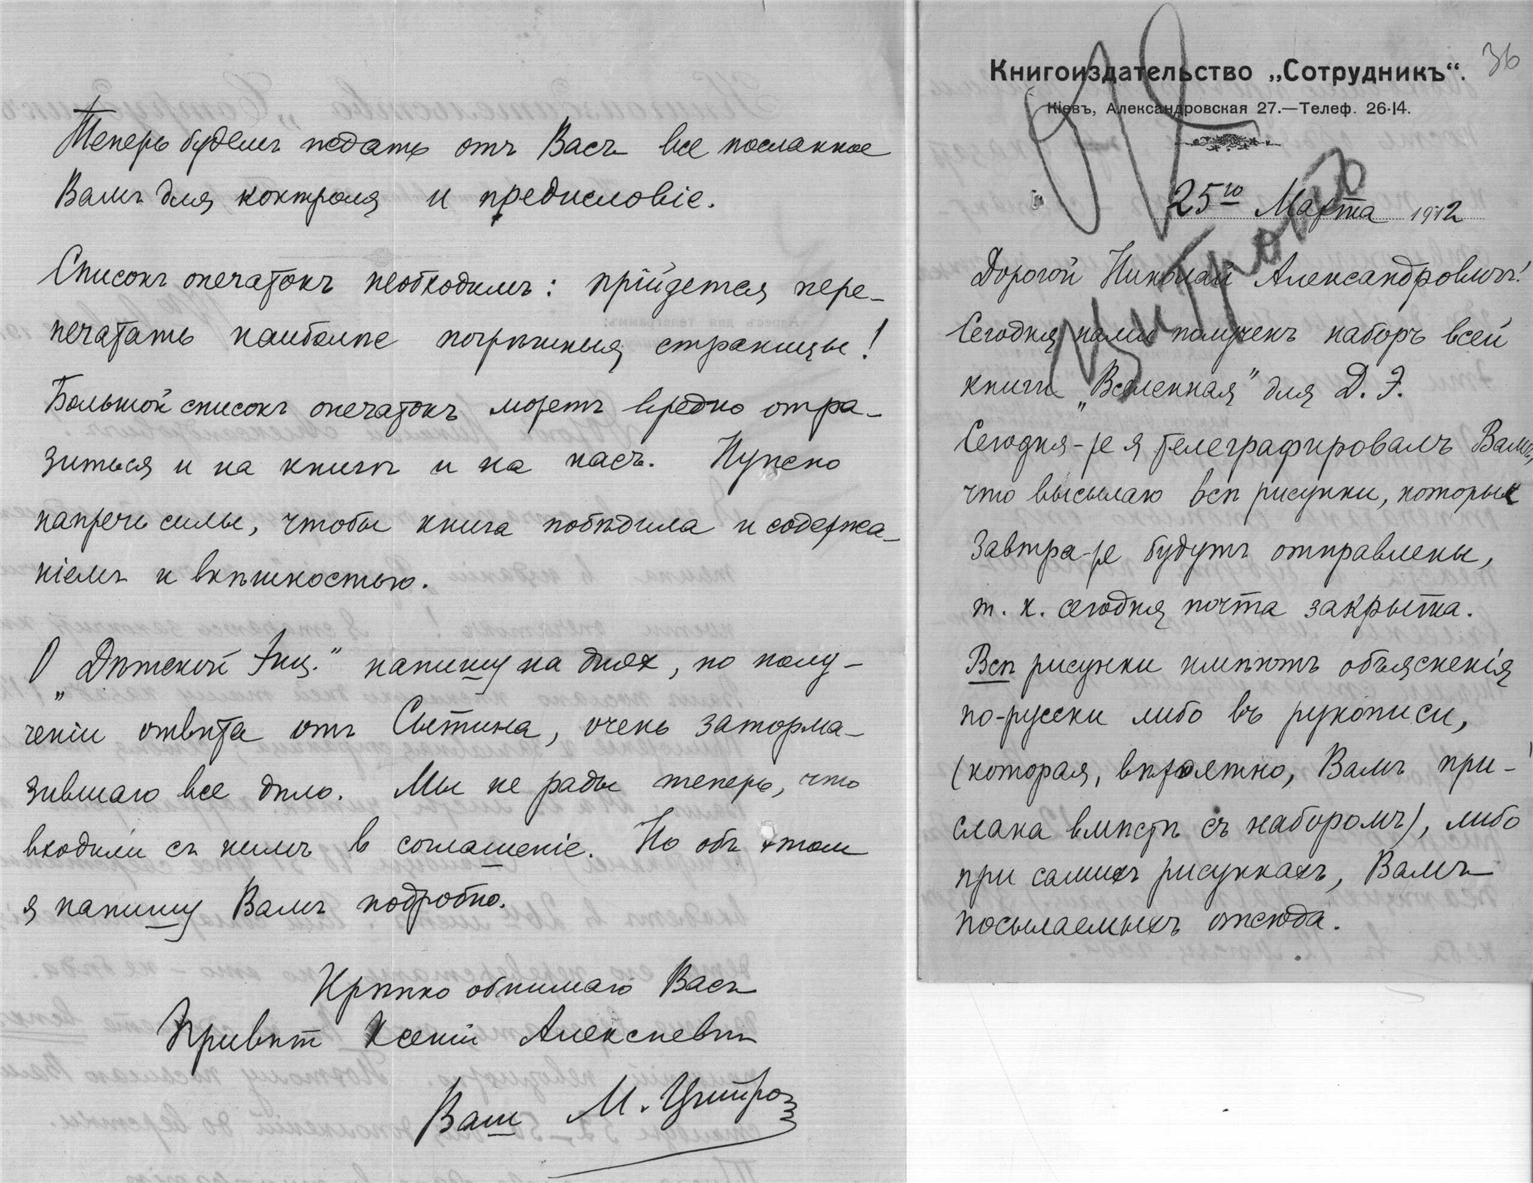 Теперь будемъ ждать отъ Васъ все посланное
Вамъ для контроля и предисловіе.
Списокъ опечатокъ необходимъ: прійдется пере-
печатать наиболѣе погрѣшныя страницы!
Большой списокъ опечатокъ можетъ вредно отра-
зиться и на книгѣ и на насъ. Нужно
напречь силы, чтобы книга побѣдила и содержа-
ніемъ и внѣшностью.
О „Дѣтской Энц.” напишу на дняхъ, по полу-
ченіи отвѣта отъ Сытина, очень заторма-
зившаго все дѣло. Мы не рады теперь, что
входили съ нимъ в соглашеніе. Но объ этом
я напишу Вамъ подробно.
Крѣпко обнимаю Васъ
Привѣт Ксеніи Алексѣевнѣ
Ваш М. Цитрон
36
Книгоиздательство „Сотрудникъ“.
Кіевъ, Александровская 27.—Телеф. 26-14.
25го Марта 1912
Цитронъ
Дорогой Николай Александровичъ!
Сегодня нами получен наборъ всей
книги „Вселенная” для Д. Э.
Сегодня-же я телеграфировалъ Вамъ,
что высылаю всѣ рисунки, которые
завтра-же будутъ отправлены,
т. к. сегодня почта закрыта.
Всѣ рисунки имѣютъ объясненія
по-русски либо въ рукописи,
(которая, вѣроятно, Вамъ при-
слана вмѣстѣ съ наборомъ), либо
при самихъ рисункахъ, Вамъ
посылаемыхъ отсюда.